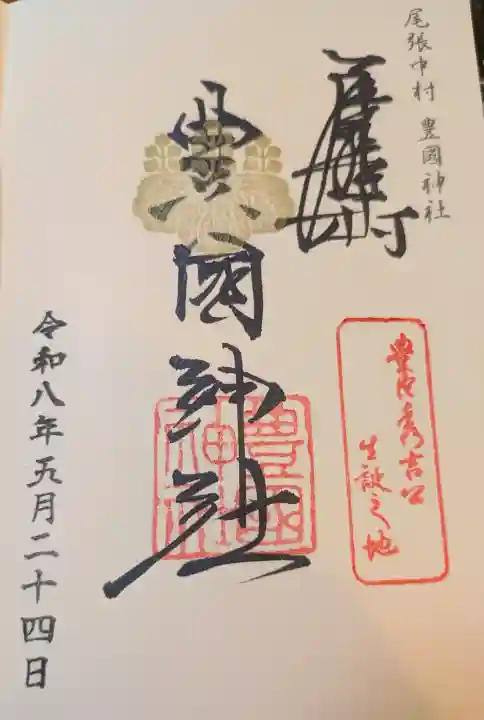 尾張中村 豊國神社
豊國神社
豊臣秀吉公
生誕之地
豊國
神社
令和八年五月二十四日